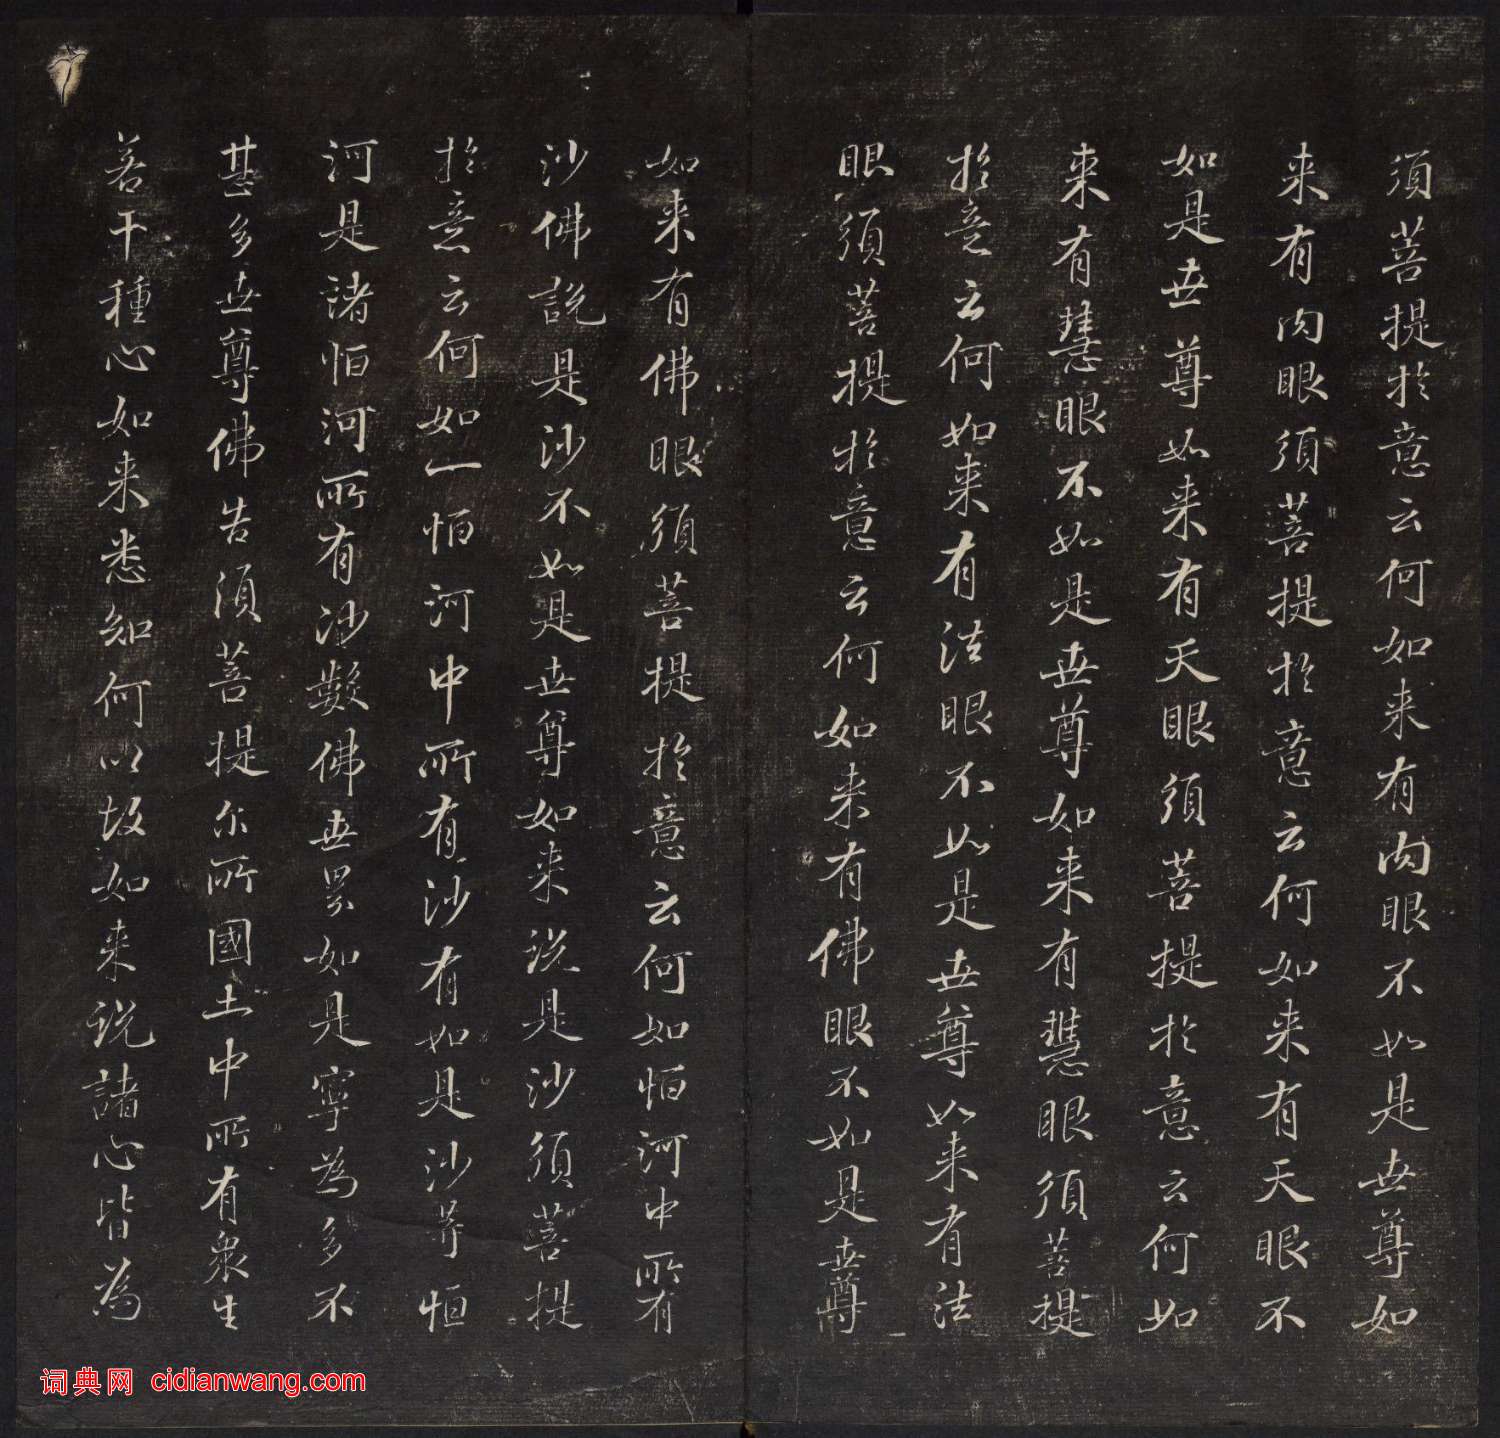 須菩提於意云何如来有肉眼不如是世尊如
来有肉眼須菩提於意云何如来有天眼不
如是世尊如来有天眼須菩提於意云何如
来有慧眼不如是世尊如来有慧眼須菩提
於意云何如来有法眼不如是世尊如来有法
眼須菩提於意云何如来有佛眼不如是世尊
如来有佛眼須菩提於意云何如恒河中所有
沙佛説是沙不如是世尊如来説是沙須菩提
於意云何如一恒河中所有沙有如是沙等恒
河是諸恒河所有沙數佛世界如是寧為多不
甚多世尊佛告須菩提尔所國土中所有衆生
若干種心如来悉知何以故如来説諸心皆為
词典网 cidianwang.com